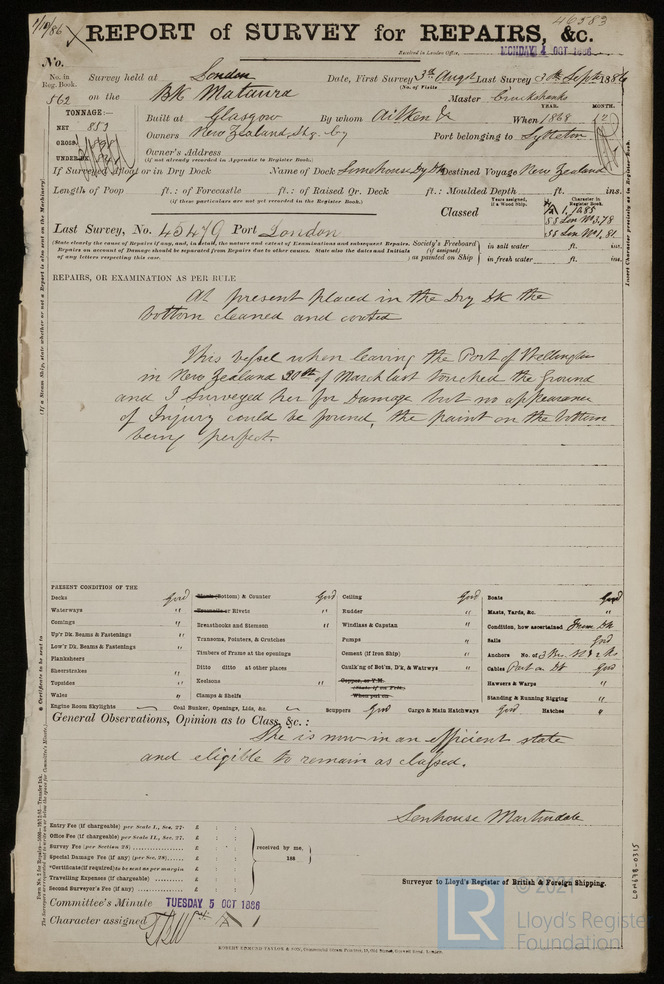 1/10/86
46583
REPORT of SURVEY for REPAIRS, &c.
Received in London Office, MONDAY 4 OCT 1886
No.
No. in Reg. Book. Survey held at London Date, First Survey 3rd Augt Last Survey 30th Septr 1886
(No. of Visits
562 on the BK Mataura Master Cruckshanks
TONNAGE:—
YEAR. MONTH.
NET 853 Built at Glasgow By whom Aitken & When 1868 12
GROSS Owners New Zealand Shg. Coy Port belonging to Lyttelton
UNDER DK Owner's Address
(if not already recorded in Appendix to Register Book.)
If Surveyed Afloat or in Dry Dock Name of Dock Limehouse Dy Dk Destined Voyage New Zealand
Length of Poop ft.: of Forecastle ft.: of Raised Qr. Deck ft.: Moulded Depth ft. ins.
(if these particulars are not yet recorded in the Register Book.)
Classed
Years assigned, if a Wood Ship.
Character in Register Book.
A 1. 12.85
SS Lon No 3.78
SS Lon No 1.81
Last Survey, No. 45479 Port London
(State clearly the cause of Repairs if any, and, in detail, the nature and extent of Examinations and subsequent Repairs.
Repairs on account of Damage should be separated from Repairs due to other causes. State also the dates and Initials
of any letters respecting this case.
Society's Freeboard (if assigned) as painted on Ship
in salt water ft. ins.
in fresh water ft. ins.
Insert Character precisely as in Register Book.
REPAIRS, OR EXAMINATION AS PER RULE
At present placed in the Dry Dk the
bottom cleaned and coated
This vessel when leaving the Port of Wellington
in New Zealand 30th of March last touched the ground
and I surveyed her for Damage but no appearance
of Injury could be found, the paint on the bottom
being perfect.
PRESENT CONDITION OF THE
Decks Good
Waterways "
Comings "
Up'r Dk. Beams & Fastenings "
Low'r Dk. Beams & Fastenings "
Planksheers
Sheerstrakes "
Topsides "
Wales "
Engine Room Skylights
Plank (Bottom) & Counter Good
Treenails or Rivets "
Breasthooks and Stemson "
Transoms, Pointers, & Crutches
Timbers of Frame at the openings
Ditto ditto at other places
Keelsons "
Clamps & Shelfs
Coal Bunker, Openings, Lids, &c.
Ceiling Good
Rudder "
Windlass & Capstan "
Pumps "
Cement (if Iron Ship) "
Caulk'ng of Bot'm, D'k, & Watrwys "
Copper, or Y.M.
(State if on Felt.
When put on
Scuppers Good Cargo & Main Hatchways Good Hatches "
Boats Good
Masts, Yards, &c. "
Condition, how ascertained From Dk
Sails Good
Anchors No. of 3 Br.
Cables Part on Dk Good
Hawsers & Warps "
Standing & Running Rigging "
General Observations, Opinion as to Class, &c.:
She is now in an efficient state
and eligible to remain as classed.
Senhouse Martindale
Surveyor to Lloyd's Register of British & Foreign Shipping.
Entry Fee (if chargeable) per Scale I., Sec. 27. £ : :
Office Fee (if chargeable) per Scale II., Sec. 27. £ : :
Survey Fee (per Section 28) £ : :
Special Damage Fee (if any) (per Sec. 28) £ : :
*Certificate (if required) to be sent as per margin £ : :
Travelling Expenses (if chargeable) £ : :
Second Surveyor's Fee (if any) £ : :
received by me,
188
Committee's Minute TUESDAY 5 OCT 1886
Character assigned A 1
ROBERT EDMUND TAYLOR & SON
LON678-0315
© 2021
LR
Lloyd's Register
Foundation